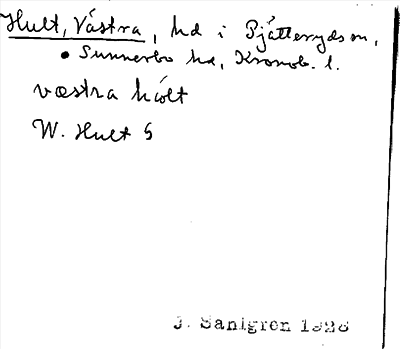 Hult, Västra, hd i Pjätteryds sn,
• Sunnerbo hd, Kronob. l.
væstra hult
W. Hult S
J. Sahlgren 1928